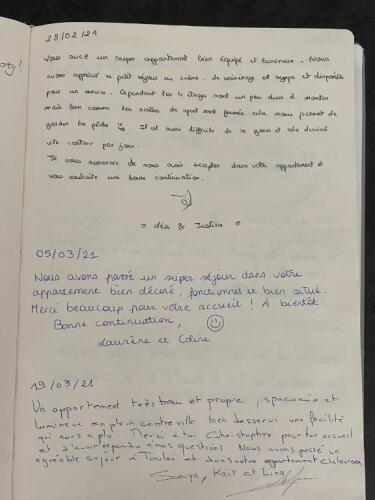 ozy!
28/02/21
Vous avez un super appartement bien équipé et lumineux. Nous
avons apprécié ce petit séjour au calme. Le voisinage est sympa et disponible
pour un service. Cependant les 4 étages sont un peu durs à monter
mais bon comme les salles de sport sont fermés cela nous permet de
garder la pêche. Il est aussi difficile de se garer et cela devient
vite contraignant
Je vous remercie de nous avoir accepter dans votre appartement et
vous souhaite une bonne continuation.
Léa & Justine
05/03/21
Nous avons passé un super séjour dans votre
appartement bien décoré, fonctionnel et bien situé.
Merci beaucoup pour votre accueil ! À bientôt.
Bonne continuation,
Laurène et Coline
19/03/21
Un appartement très beau et propre, spacieux et
lumineux en plein centre ville bien desservi une facilité
qui nous a plu. Merci à tui Christopher pour ton accueil
et d'avoir répondu à nos questions. Nous avons passé un
agréable séjour à Toulon et dans votre appartement chaleureux
Sonya, Kaïs et Lina